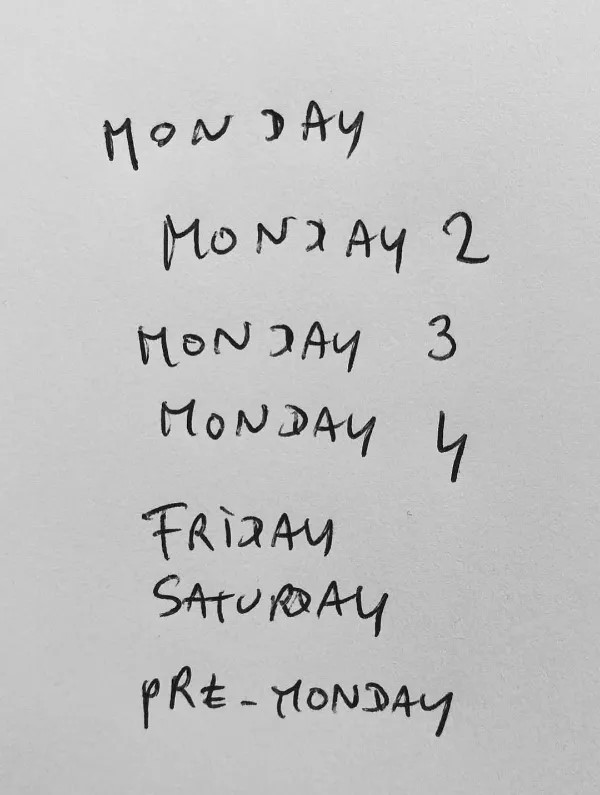 MONDAY
MONDAY 2
MONDAY 3
MONDAY 4
FRIDAY
SATURDAY
PRE-MONDAY